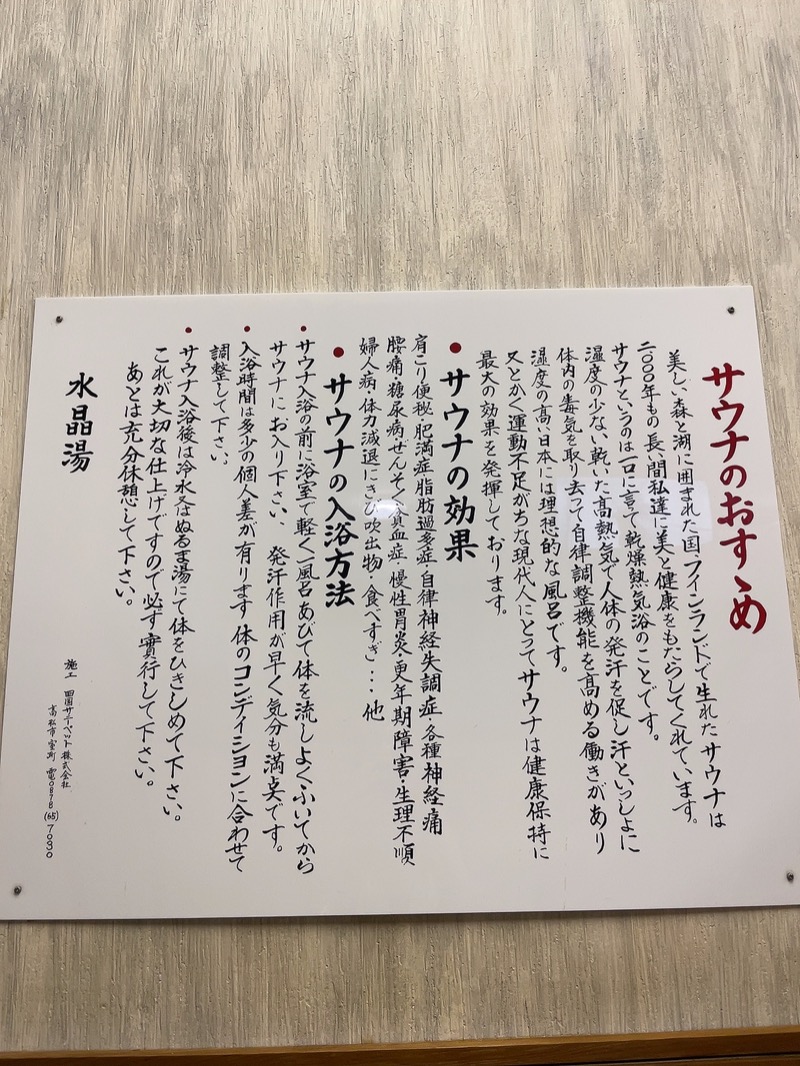 サウナのおすゝめ
美しい森と湖に囲まれた国フィンランドで生れたサウナは
二〇〇〇年もの長い間私達に美と健康をもたらしてくれています。
サウナというのは一口に言って乾燥熱気浴のことです。
湿度の少ない乾いた高熱気で人体の発汗を促し汗といっしょに
体内の毒気を取り去って自律調整機能を高める働きがあり
湿度の高い日本には理想的な風呂です。
又とかく運動不足がちな現代人にとってサウナは健康保持に
最大の効果を発揮しております。
●サウナの効果
肩こり便秘・肥満症・脂肪過多症・自律神経失調症・各種神経痛
腰痛・糖尿病・ぜんそく・貧血症・慢性胃炎・更年期障害・生理不順
婦人病・体力減退・にきび・吹出物・食べすぎ・・・他
●サウナの入浴方法
●サウナ入浴の前に浴室で軽く一風呂あびて体を流しよくふいてから
サウナにお入り下さい、発汗作用が早く気分も満点です。
●入浴時間は多少の個人差が有ります体のコンディションに合わせて
調整して下さい。
●サウナ入浴後は冷水又はぬるま湯にて体をひきしめて下さい。
これが大切な仕上げですので必ず実行して下さい。
あとは充分休憩して下さい。
水晶湯
施工 四国サーペット株式会社
高松市室町 電0878(65)7090